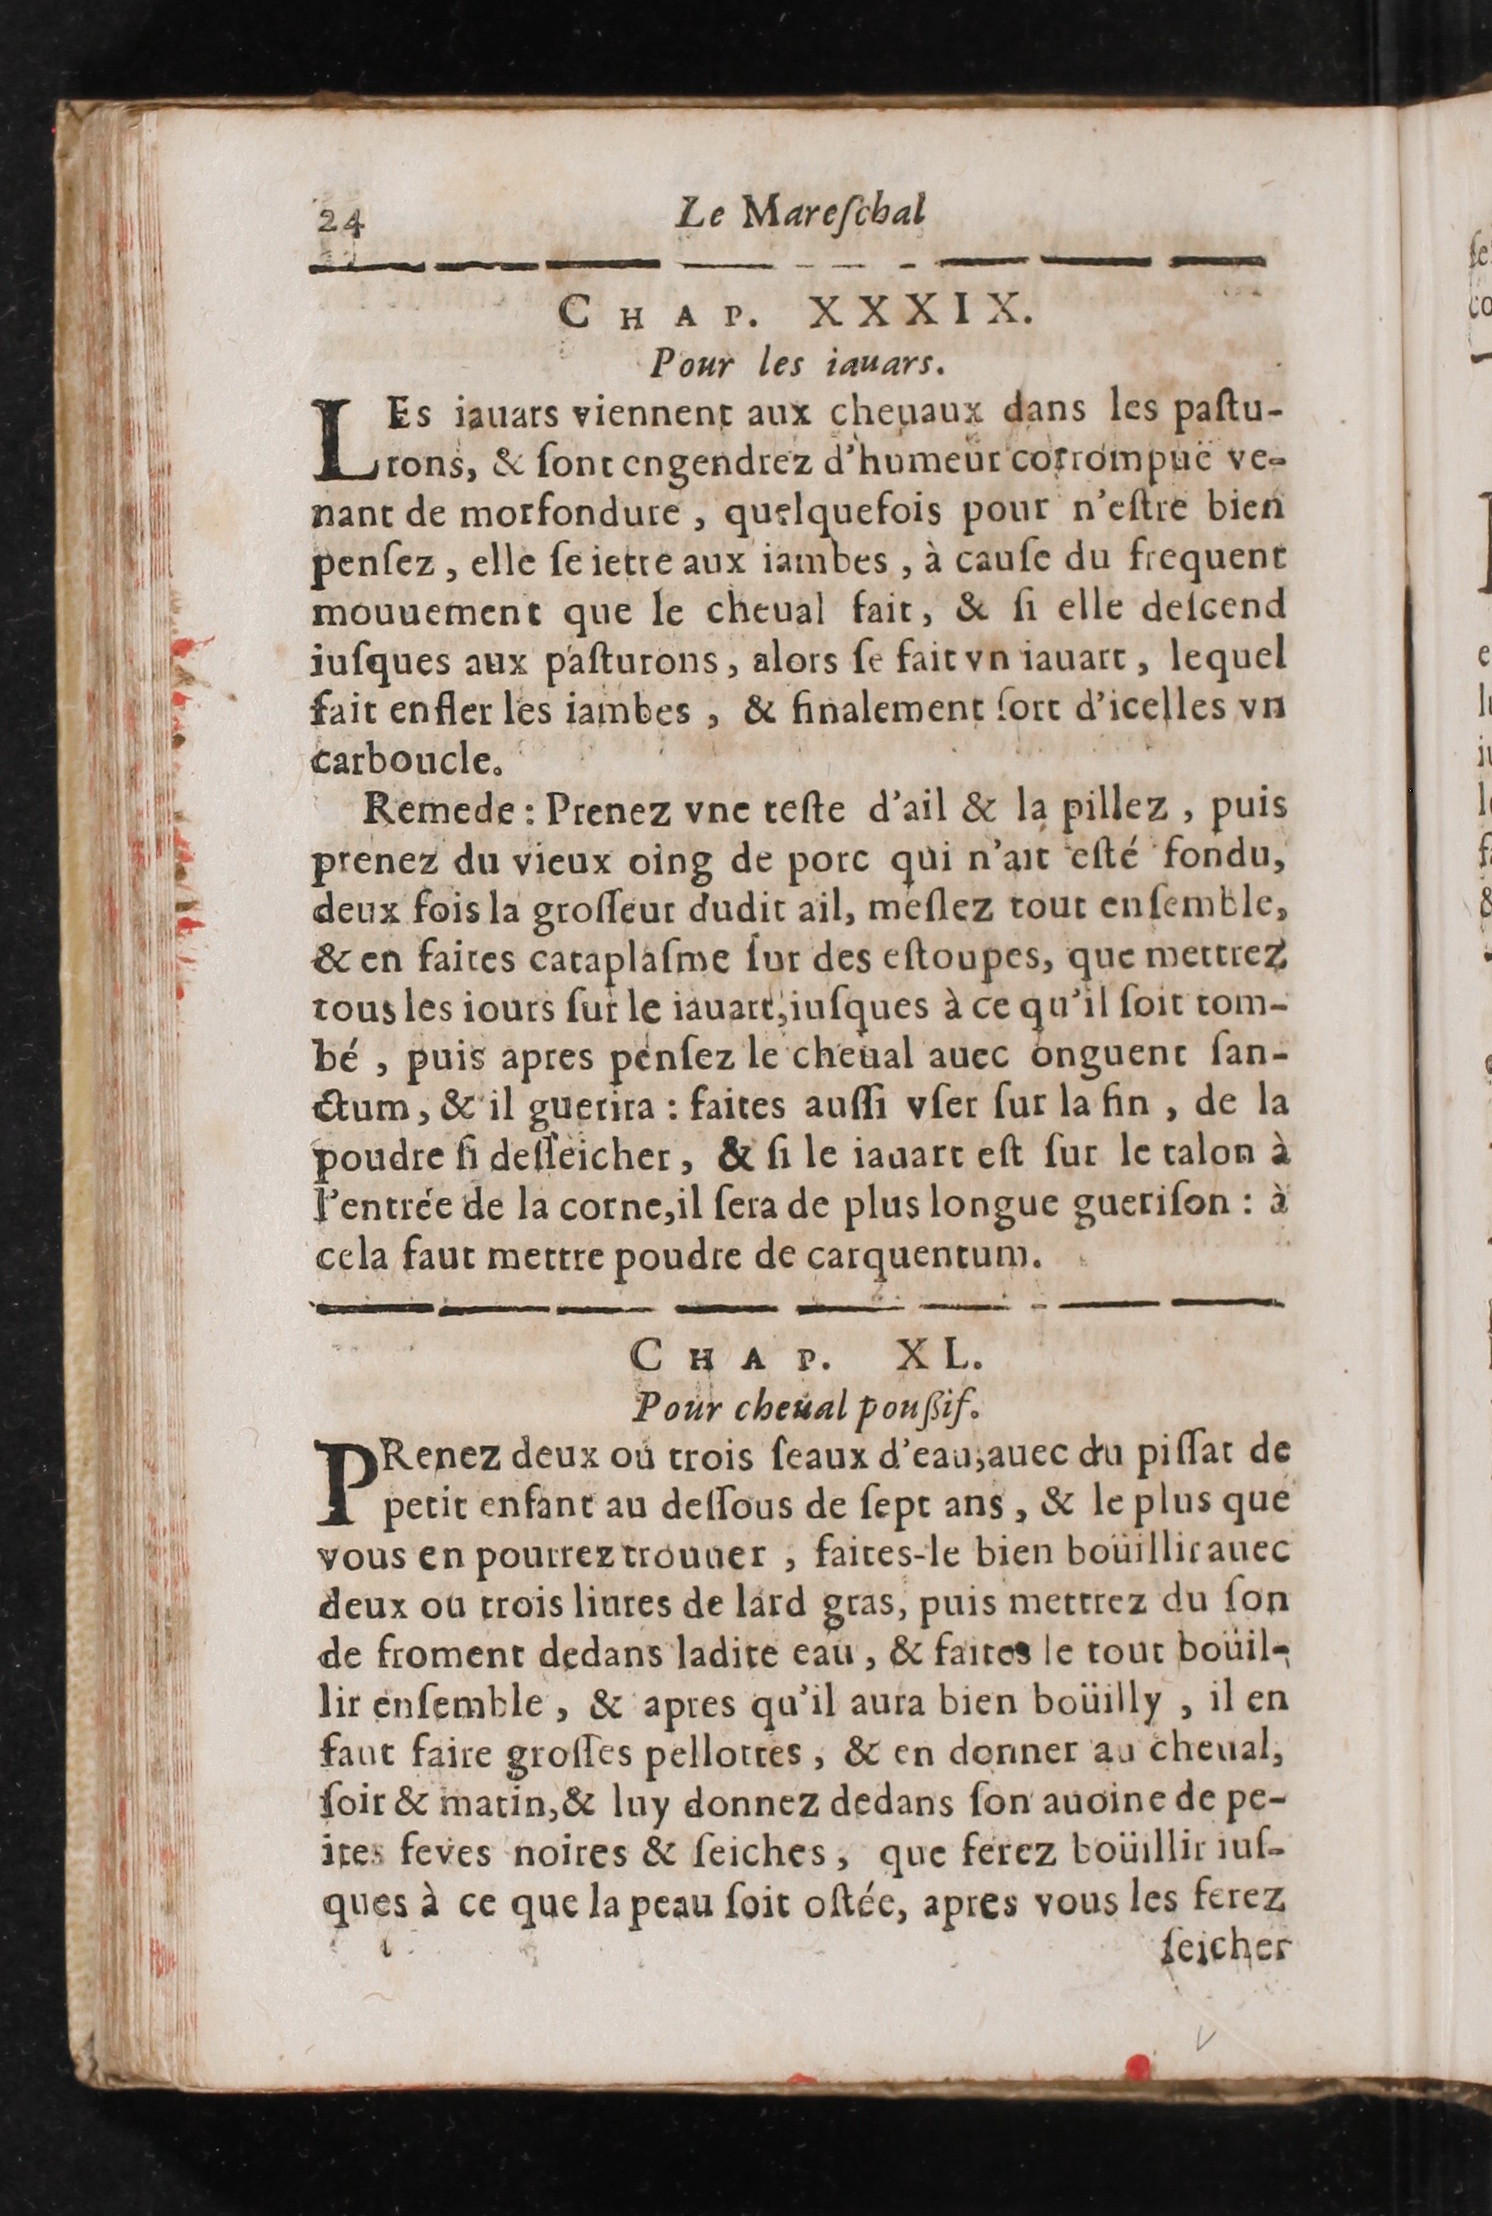 24 Le Mareſchal
CHAP. XXXIX.
Pour les iauars.
LEs iauars viennent aux cheuaux dans les paſtu-
rons, & ſont engendrez d'humeur corrompuë ve-
nant de morfondure, quelquefois pour n'eſtre bien
penſez, elle ſe iette aux iambes, à cauſe du frequent
mouuement que le cheual fait, & ſi elle deſcend
iuſques aux paſturons, alors ſe fait vn iauart, lequel
fait enfler les iambes, & finalement ſort d'icelles vn
carboucle.
Remede: Prenez vne teſte d'ail & la pillez, puis
prenez du vieux oing de porc qui n'ait eſté fondu,
deux fois la groſſeur dudit ail, meſlez tout enſemble,
& en faites cataplaſme ſur des eſtoupes, que mettrez
tous les iours ſur le iauart, iuſques à ce qu'il ſoit tom-
bé, puis apres penſez le cheual auec onguent ſan-
ctum, & il guerira: faites auſſi vſer ſur la fin, de la
poudre ſi deſſeicher, & ſi le iauart eſt ſur le talon à
l'entrée de la corne, il ſera de plus longue gueriſon: à
cela faut mettre poudre de carquentum.
CHAP. XL.
Pour cheual pouſsif.
PRenez deux ou trois ſeaux d'eau, auec du piſſat de
petit enfant au deſſous de ſept ans, & le plus que
vous en pourrez trouuer, faites-le bien boüillir auec
deux ou trois liures de lard gras, puis mettrez du ſon
de froment dedans ladite eau, & faites le tout boüil-
lir enſemble, & apres qu'il aura bien boüilly, il en
faut faire groſſes pellottes, & en donner au cheual,
ſoir & matin, & luy donnez dedans ſon auoine de pe-
ites feves noires & ſeiches, que ferez boüillir iuſ-
ques à ce que la peau ſoit oſtée, apres vous les ferez
ſeicher